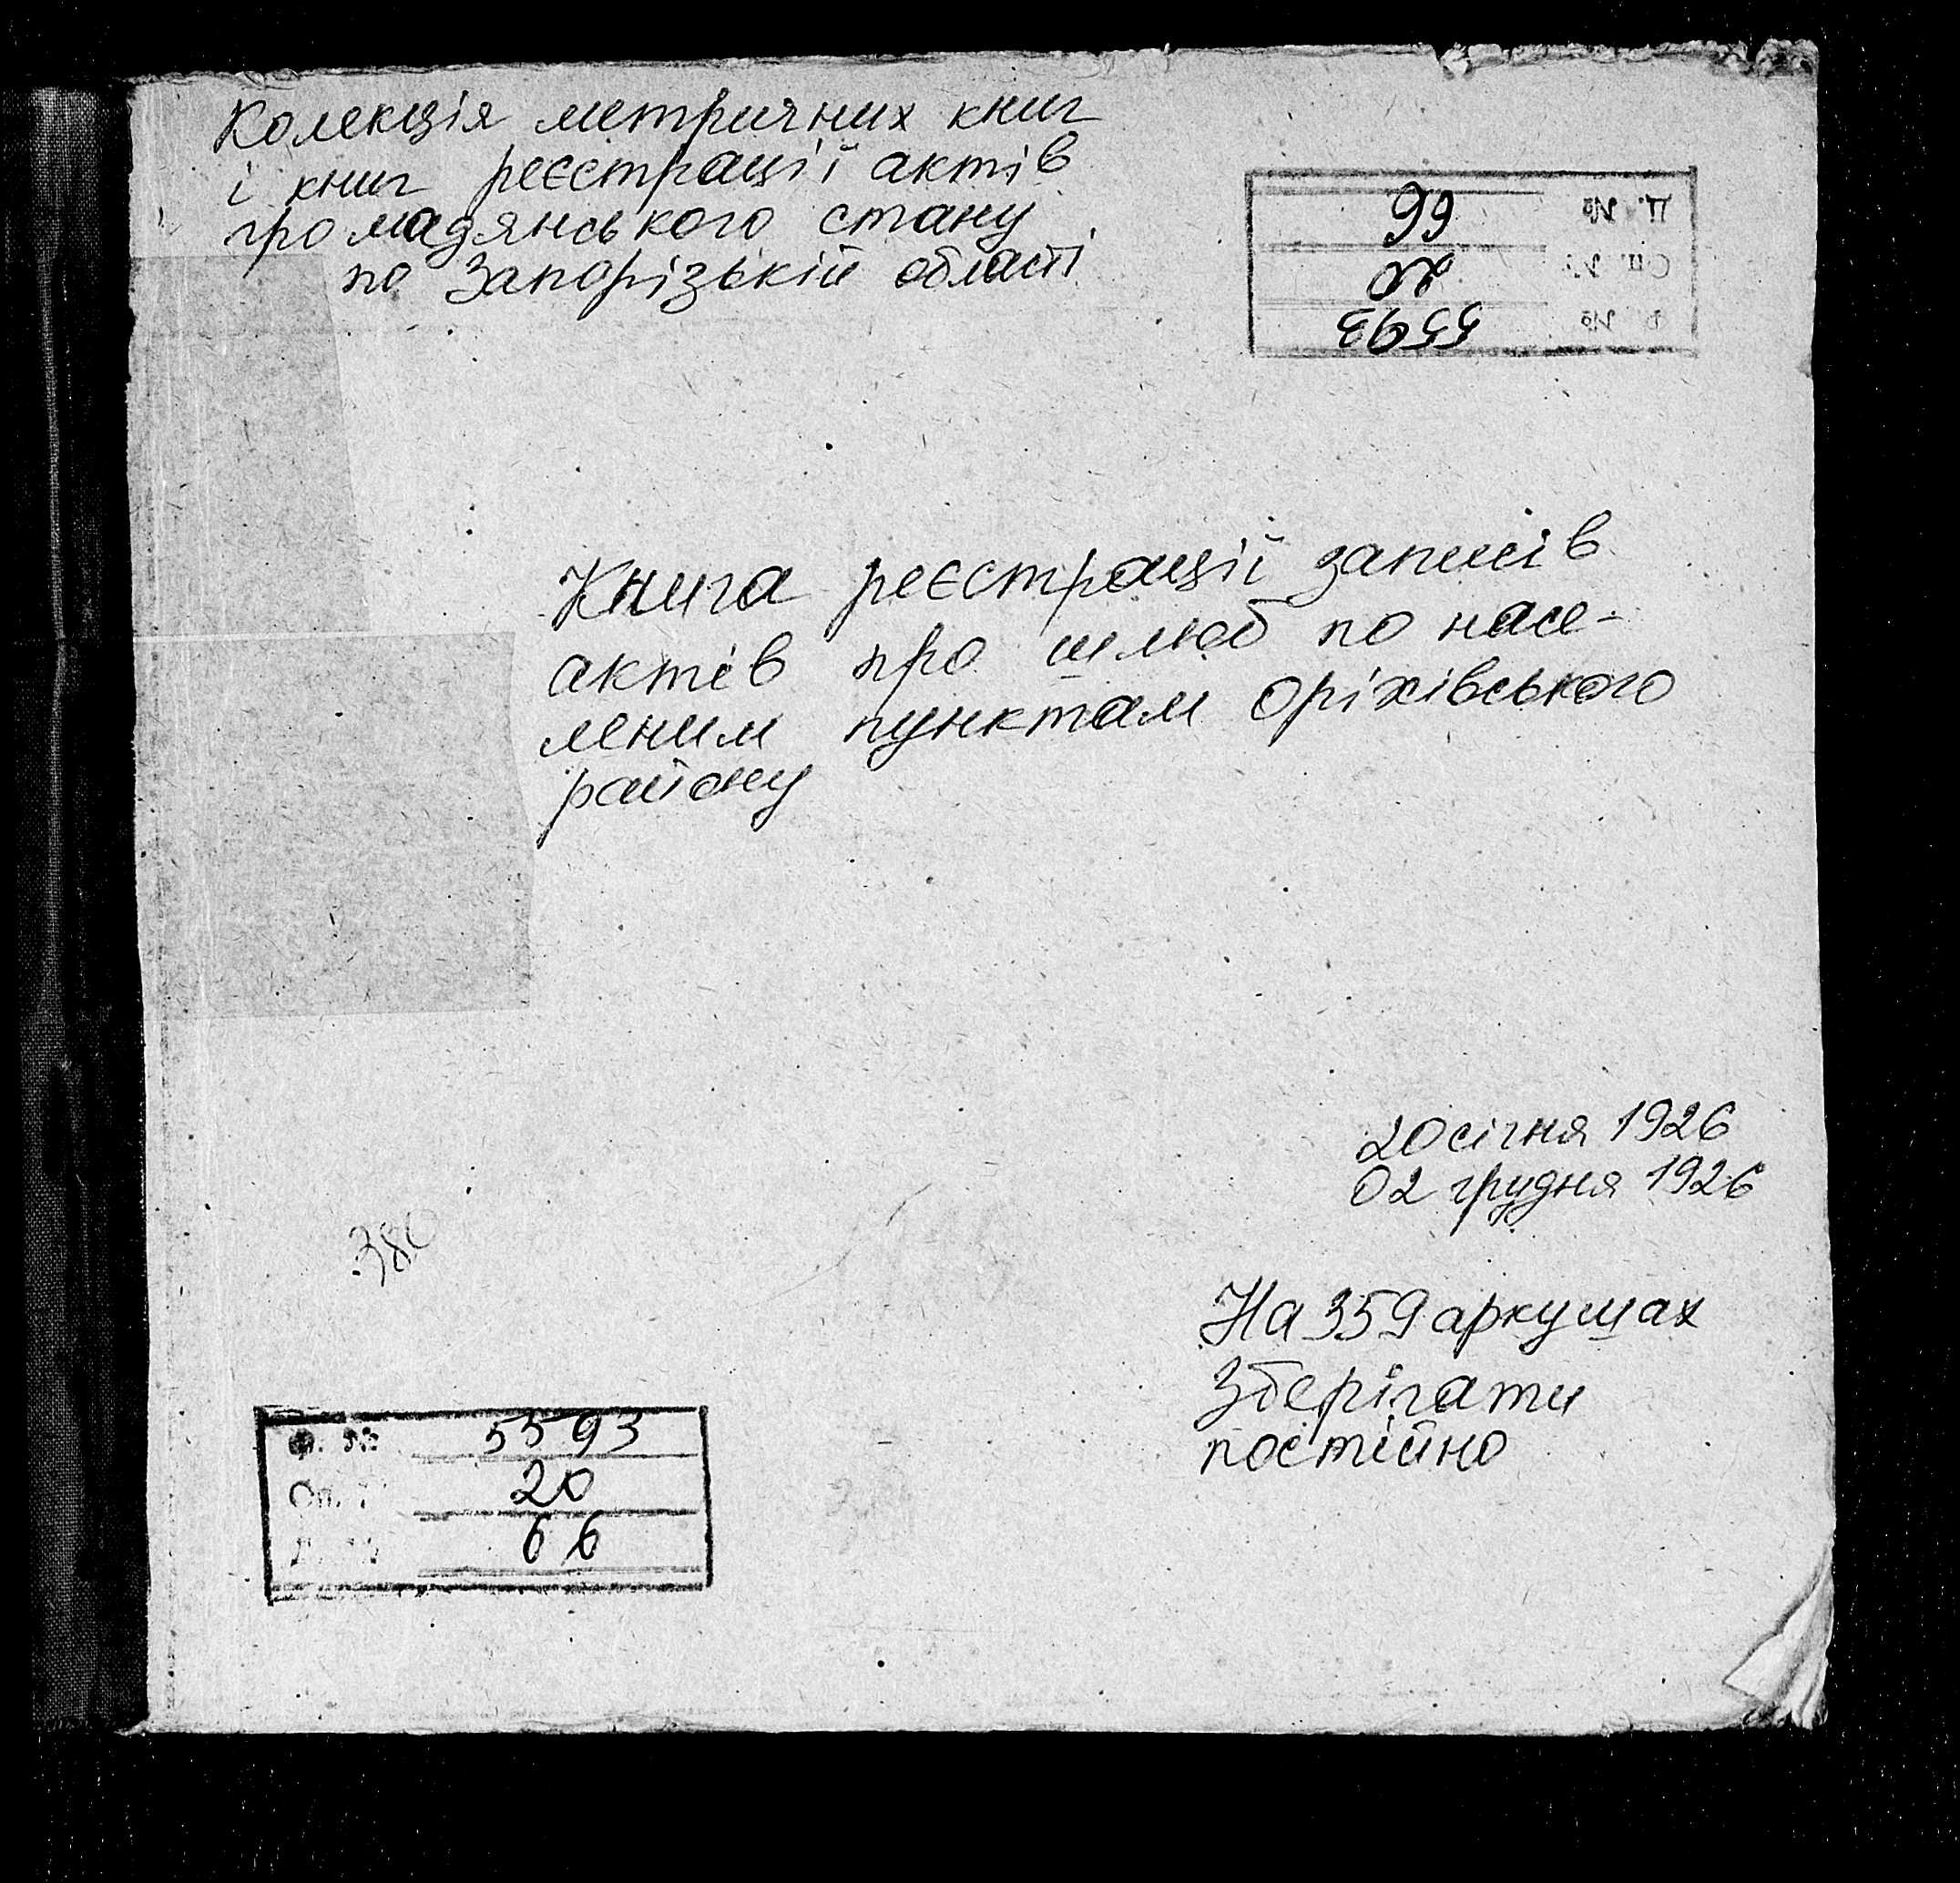 Колекція метричних книг
і книг реєстрації актів
громадянського стану
по Запорізькій області
66
20
5593
Книга реєстрації записів
актів про шлюб по насе-
леним пунктам Оріхівського
району
20 січня 1926
02 грудня 1926
380
На 359 аркушах
Зберігати
постійно
Ф. № 5593
Оп. 20
66